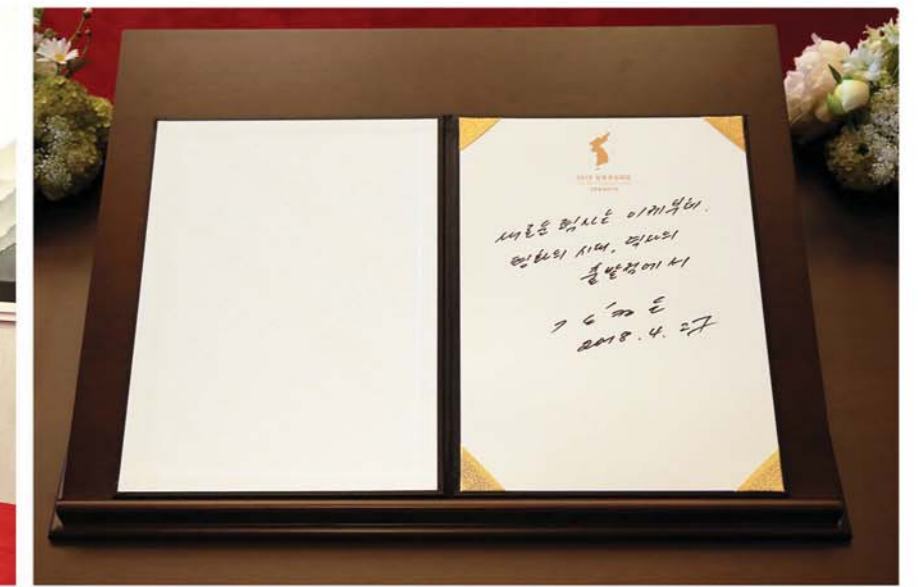 2018 남북정상회담
새로운 력사는 이제부터.
평화의 시대, 력사의
출발점에서
김정은
2018. 4. 27